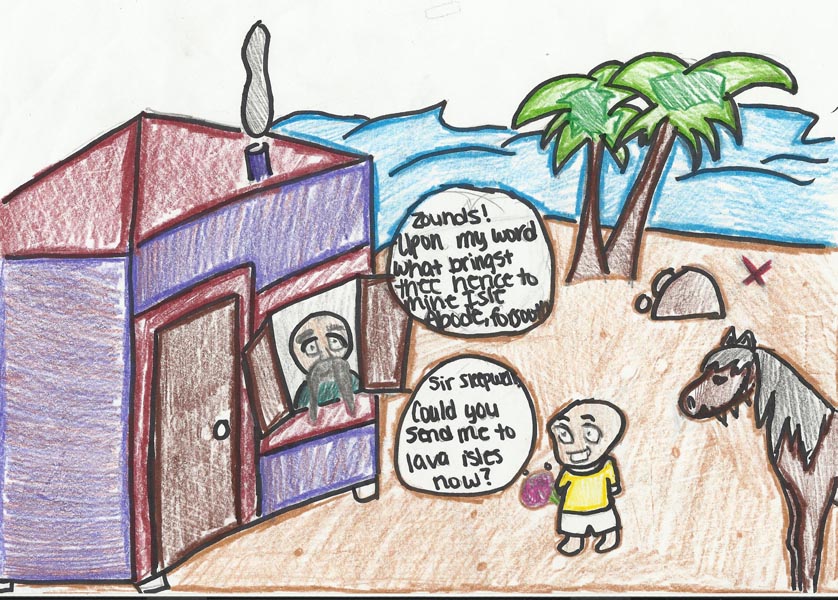 Zounds!
Upon my word
what bringst
thee hence to
mine Isle
Abode, forsooth
Sir sleepwell,
Could you
send me to
lava isles
now?